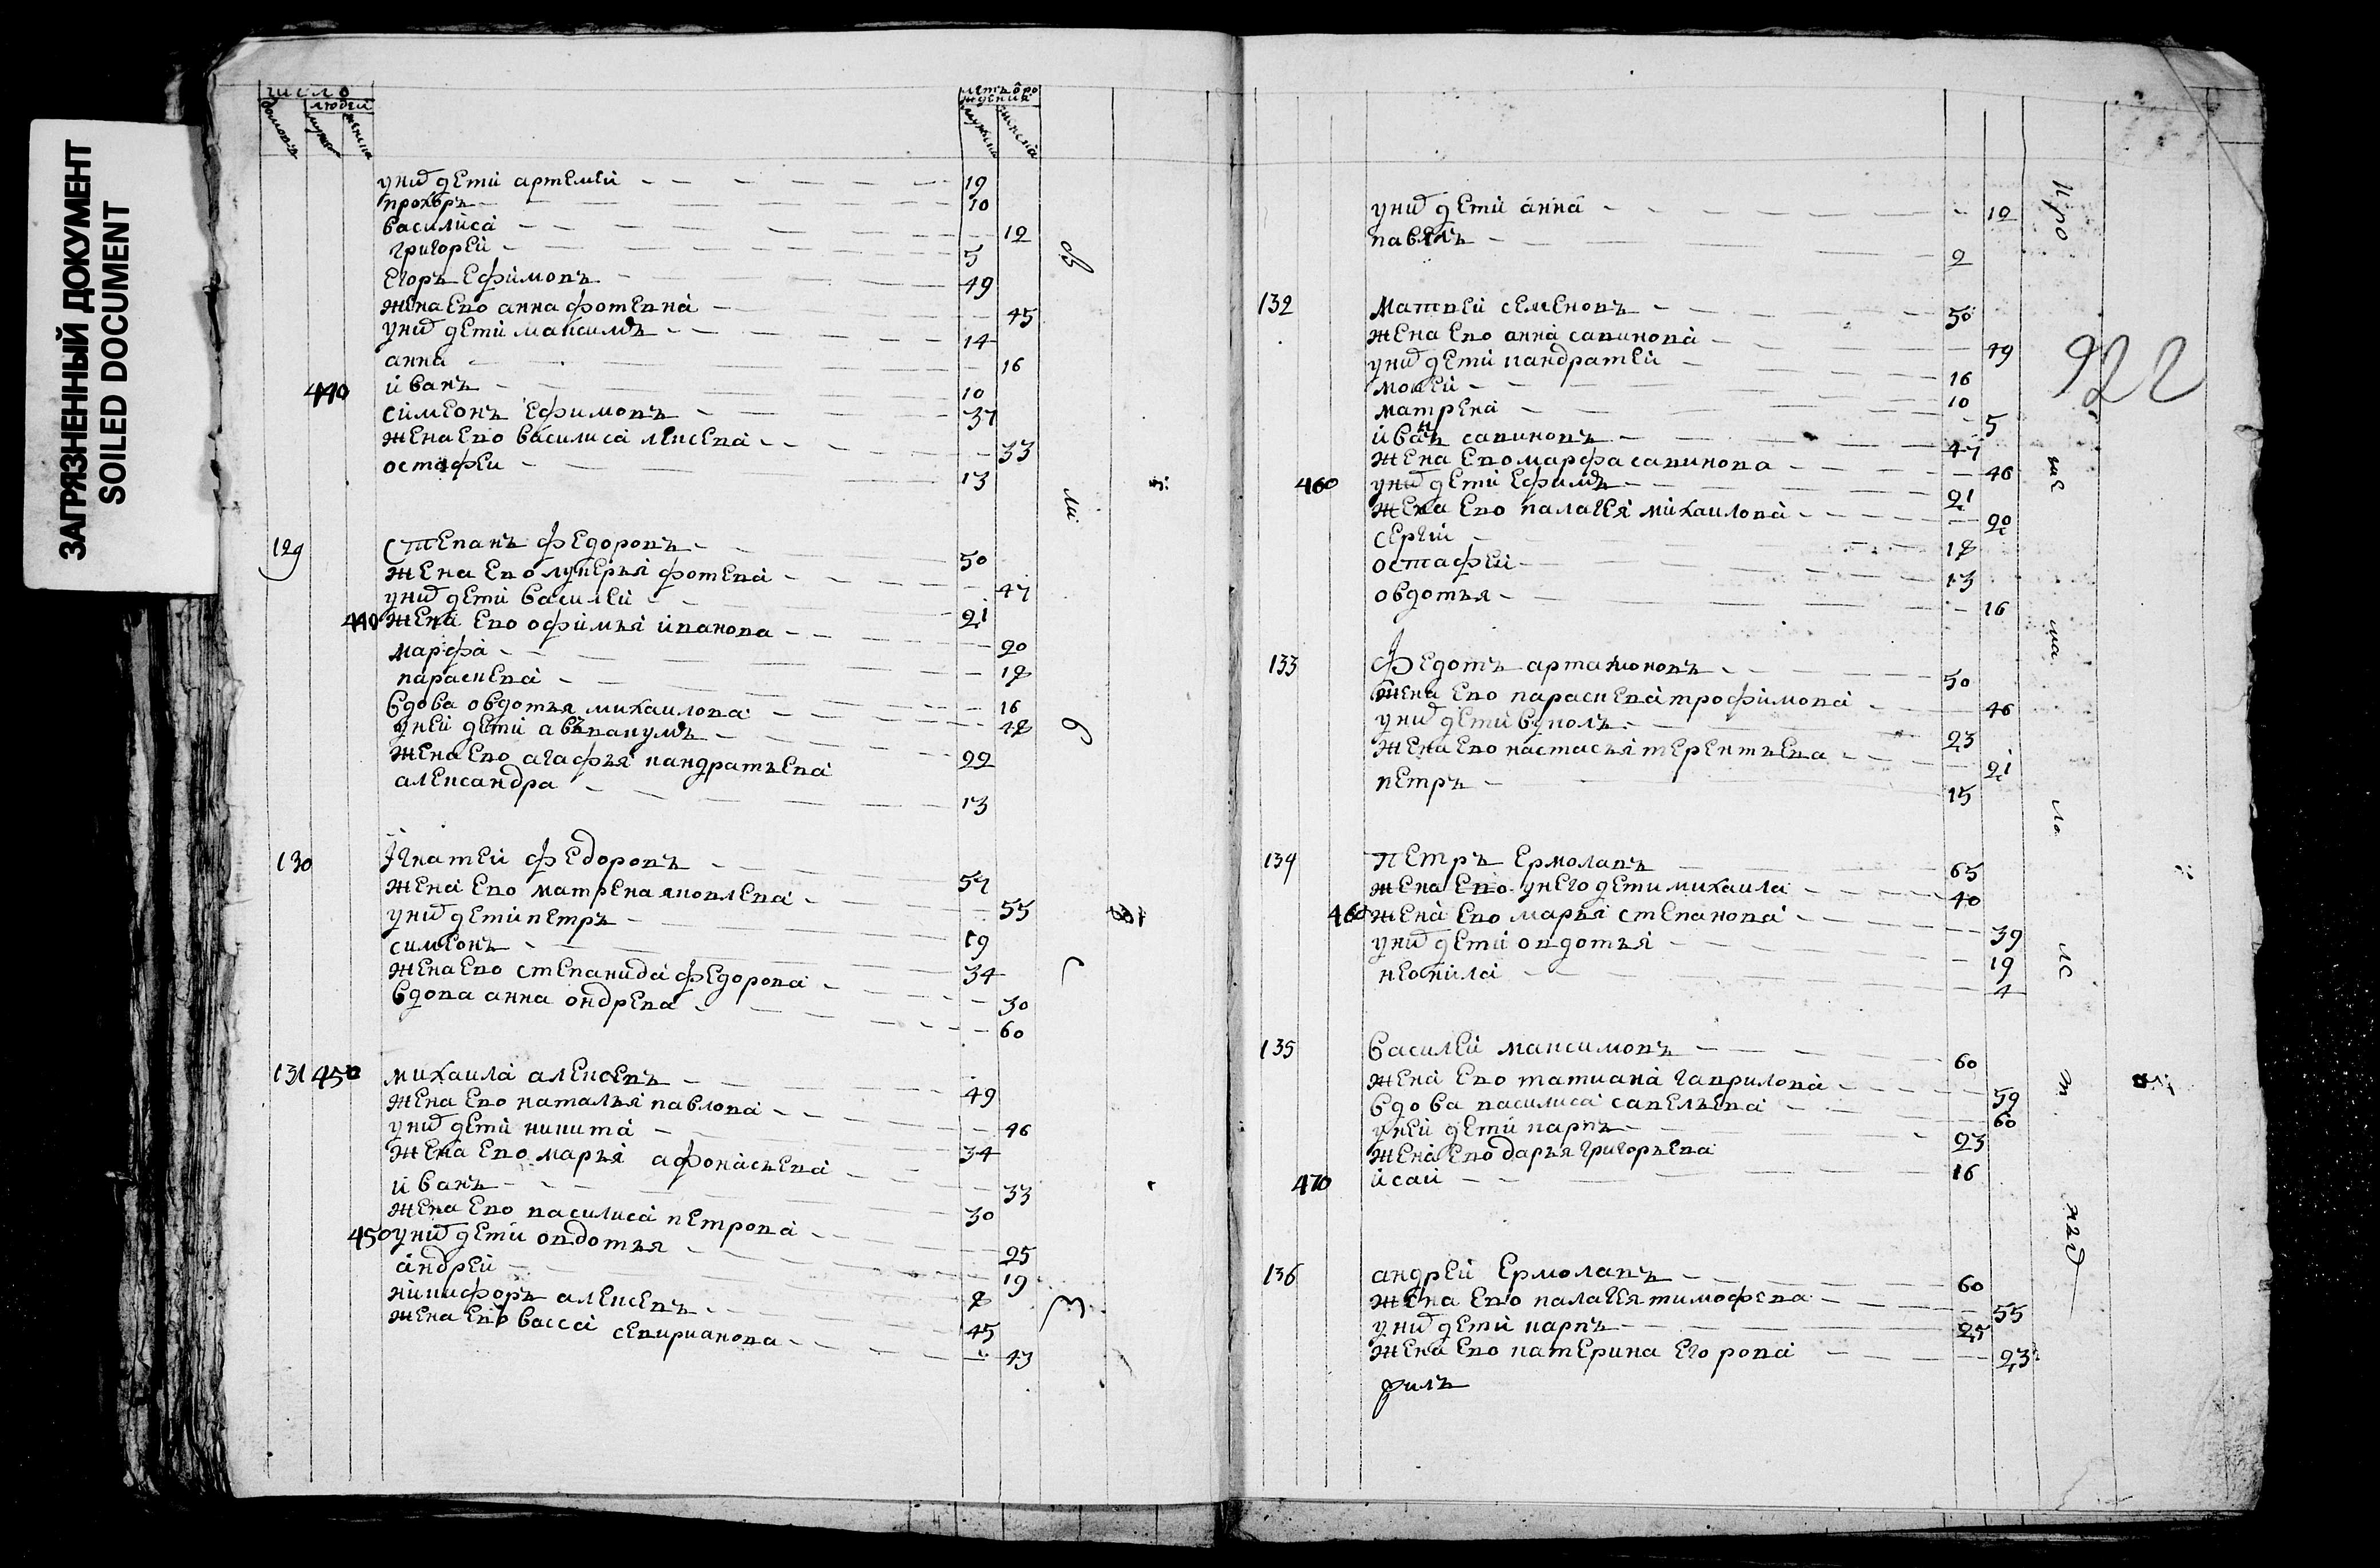 ЗАГРЯЗНЕННЫЙ ДОКУМЕНТ
SOILED DOCUMENT
число
людей
летъ ôро
ждения
унихъ дети артемеи 19
прохоръ 10
василиса 12
григореи 5
Егоръ Ефимовъ 49
жена Ево анна фотевна 45
унихъ дети максимъ 14
анна 16
440 иванъ 10
симеонъ Ефимовъ 37
жена Ево василиса 33
остафеи 13
129 Степанъ федоровъ 50
жена Ево лукерья фотева 47
унихъ дети василеи 21
440 жена Ево офимья иванова 20
марфа 18
параскева 16
вдова овдотья михаилова 48
унеи дети аввакумъ 22
жена Ево агафья кандратьева
александра 13
130 Игнатеи федоровъ 57
жена Ево матрена яковлева 55
унихъ дети петръ 19
симеонъ 34
жена Ево степанида федорова 30
вдова анна ондрева 60
131 450 михаила алексевъ 49
жена Ево наталья павлова 46
унихъ дети никита 34
жена Ево марья афонасьева 33
иванъ 30
жена Ево василиса петрова 25
450 унихъ дети овдотья 19
андреи 8
никифоръ алексевъ 45
жена Ево васса севирианова 43
922
унихъ дети анна 12
павелъ 2
132 Матвеи семеновъ 50
жена Ево анна савинова 49
унихъ дети кандратеи 16
мокеи 10
матрена 5
иванъ савиновъ 47
жена Ево марфа савинова 46
460 унихъ дети Ефимъ 21
жена Ево палагея михаилова 20
сергии 18
остафеи 13
овдотья 16
133 Федотъ артамоновъ 50
жена Ево параскева трофимова 46
унихъ дети вуколъ 23
жена Ево настасья терентьева 21
петръ 15
134 Петръ Ермолавъ 65
жена Ево унего дети михаила 40
460 жена Ево марья степанова 39
унихъ дети овдотья 19
неонила 4
135 Василеи максимовъ 60
жена Ево татиана гаврилова 59
вдова василиса савельева 60
унеи дети карпъ 23
жена Ево дарья григорьева
470 исаи 16
136 андреи Ермолавъ 60
жена Ево палагея тимофева 55
унихъ дети карпъ 25
жена Ево катерина Егорова 23
филъ